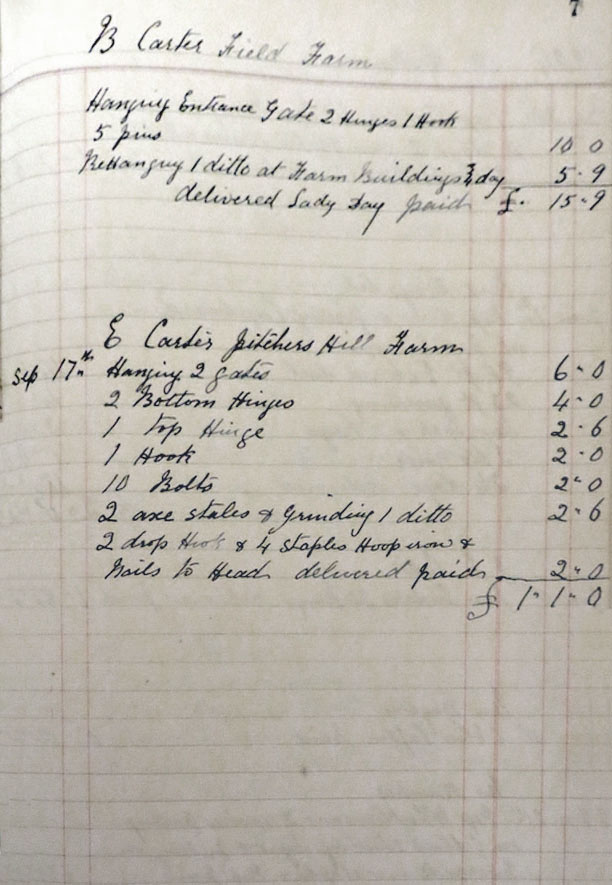 7
B Carter Field Farm
Hanging Entrance Gate 2 Hinges 1 Hook
5 pins 10 0
ReHanging 1 ditto at Farm Buildings ¾ day 5 " 9
delivered Lady Day paid £ " 15 " 9
E Carter Pitchers Hill Farm
Sep 17th Hanging 2 gates 6 " 0
2 Bottom Hinges 4 " 0
1 Top Hinge 2 " 6
1 Hook 2 " 0
10 Bolts 2 " 0
2 axe stales & Grinding 1 ditto 2 " 6
2 drop Hook & 4 Staples Hoop iron &
Nails to Head delivered paid 2 " 0
£ 1 " 1 " 0